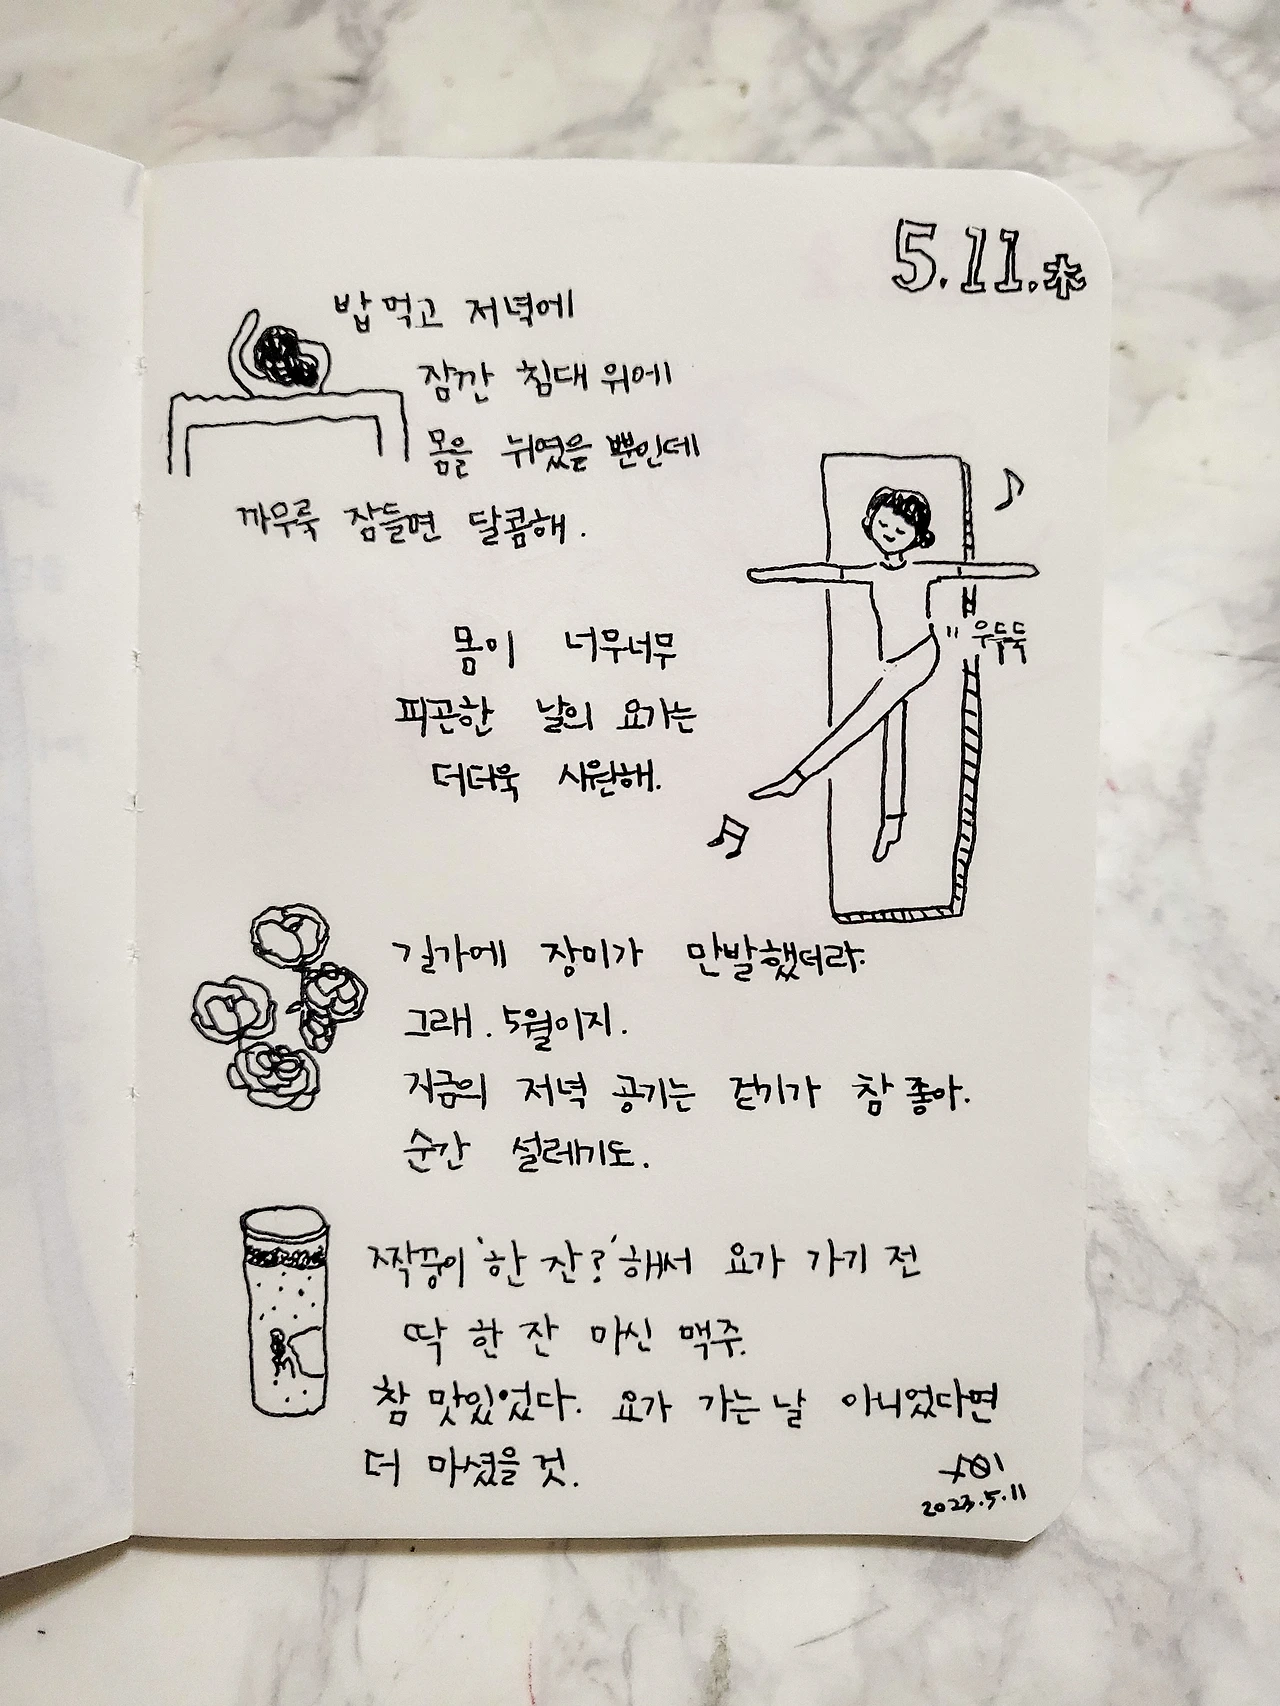 5.11.木
밥 먹고 저녁에
잠깐 침대 위에
몸을 뉘였을 뿐인데
까무룩 잠들면 달콤해.
우두둑
몸이 너무너무
피곤한 날의 요가는
더더욱 시원해.
길가에 장미가 만발했더라.
그래. 5월이지.
지금의 저녁 공기는 걷기가 참 좋아.
순간 설레기도.
짝꿍이 '한 잔?' 해서 요가 가기 전
딱 한 잔 마신 맥주.
참 맛있었다. 요가 가는 날 아니었다면
더 마셨을 것.
2023.5.11